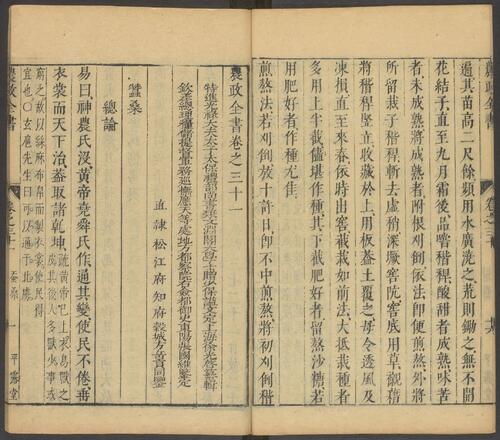 遍其苗高二尺餘頻用水廣澆之荒則鋤之無不開
花結子直至九月霜後品嘗稭稈酸甜者成熟味苦
者未成熟將成熟者附根刈倒依法即便煎熬外將
所留栽子稭稈斬去虛稍深撅窖阬窖底用草襯藉
將稭稈竪立收藏於上用板葢土覆之毋令透風及
凍損直至來春依時出窖截栽如前法大抵栽種者
多用上半截儘堪作種其下截肥好者留熬沙糖若
用肥好者作種尤佳
煎熬法若刈倒放十許日即不中煎熬將初刈倒稭
農政全書卷之三十一
特進光祿大夫太子太保禮部尚書兼文淵閣大學士贈少保諡文定上海徐光啓纂輯
欽差總理糧儲提督軍務巡撫應天等處地方都察院右僉都御史東陽張國維鑒定
直隸松江府知府穀城方岳貢同鑒
蠶桑
總論
易曰神農氏沒黃帝堯舜氏作通其變使民不倦垂
衣裳而天下治葢取諸乾坤
疏黃帝已上衣鳥獸之
皮其後人多獸少事或
窮乏故以絲麻布帛而製衣裳使民得
宜也○玄扈先生曰可以通于北虜
農政全書
卷之三十一
蠶桑
一
平露堂